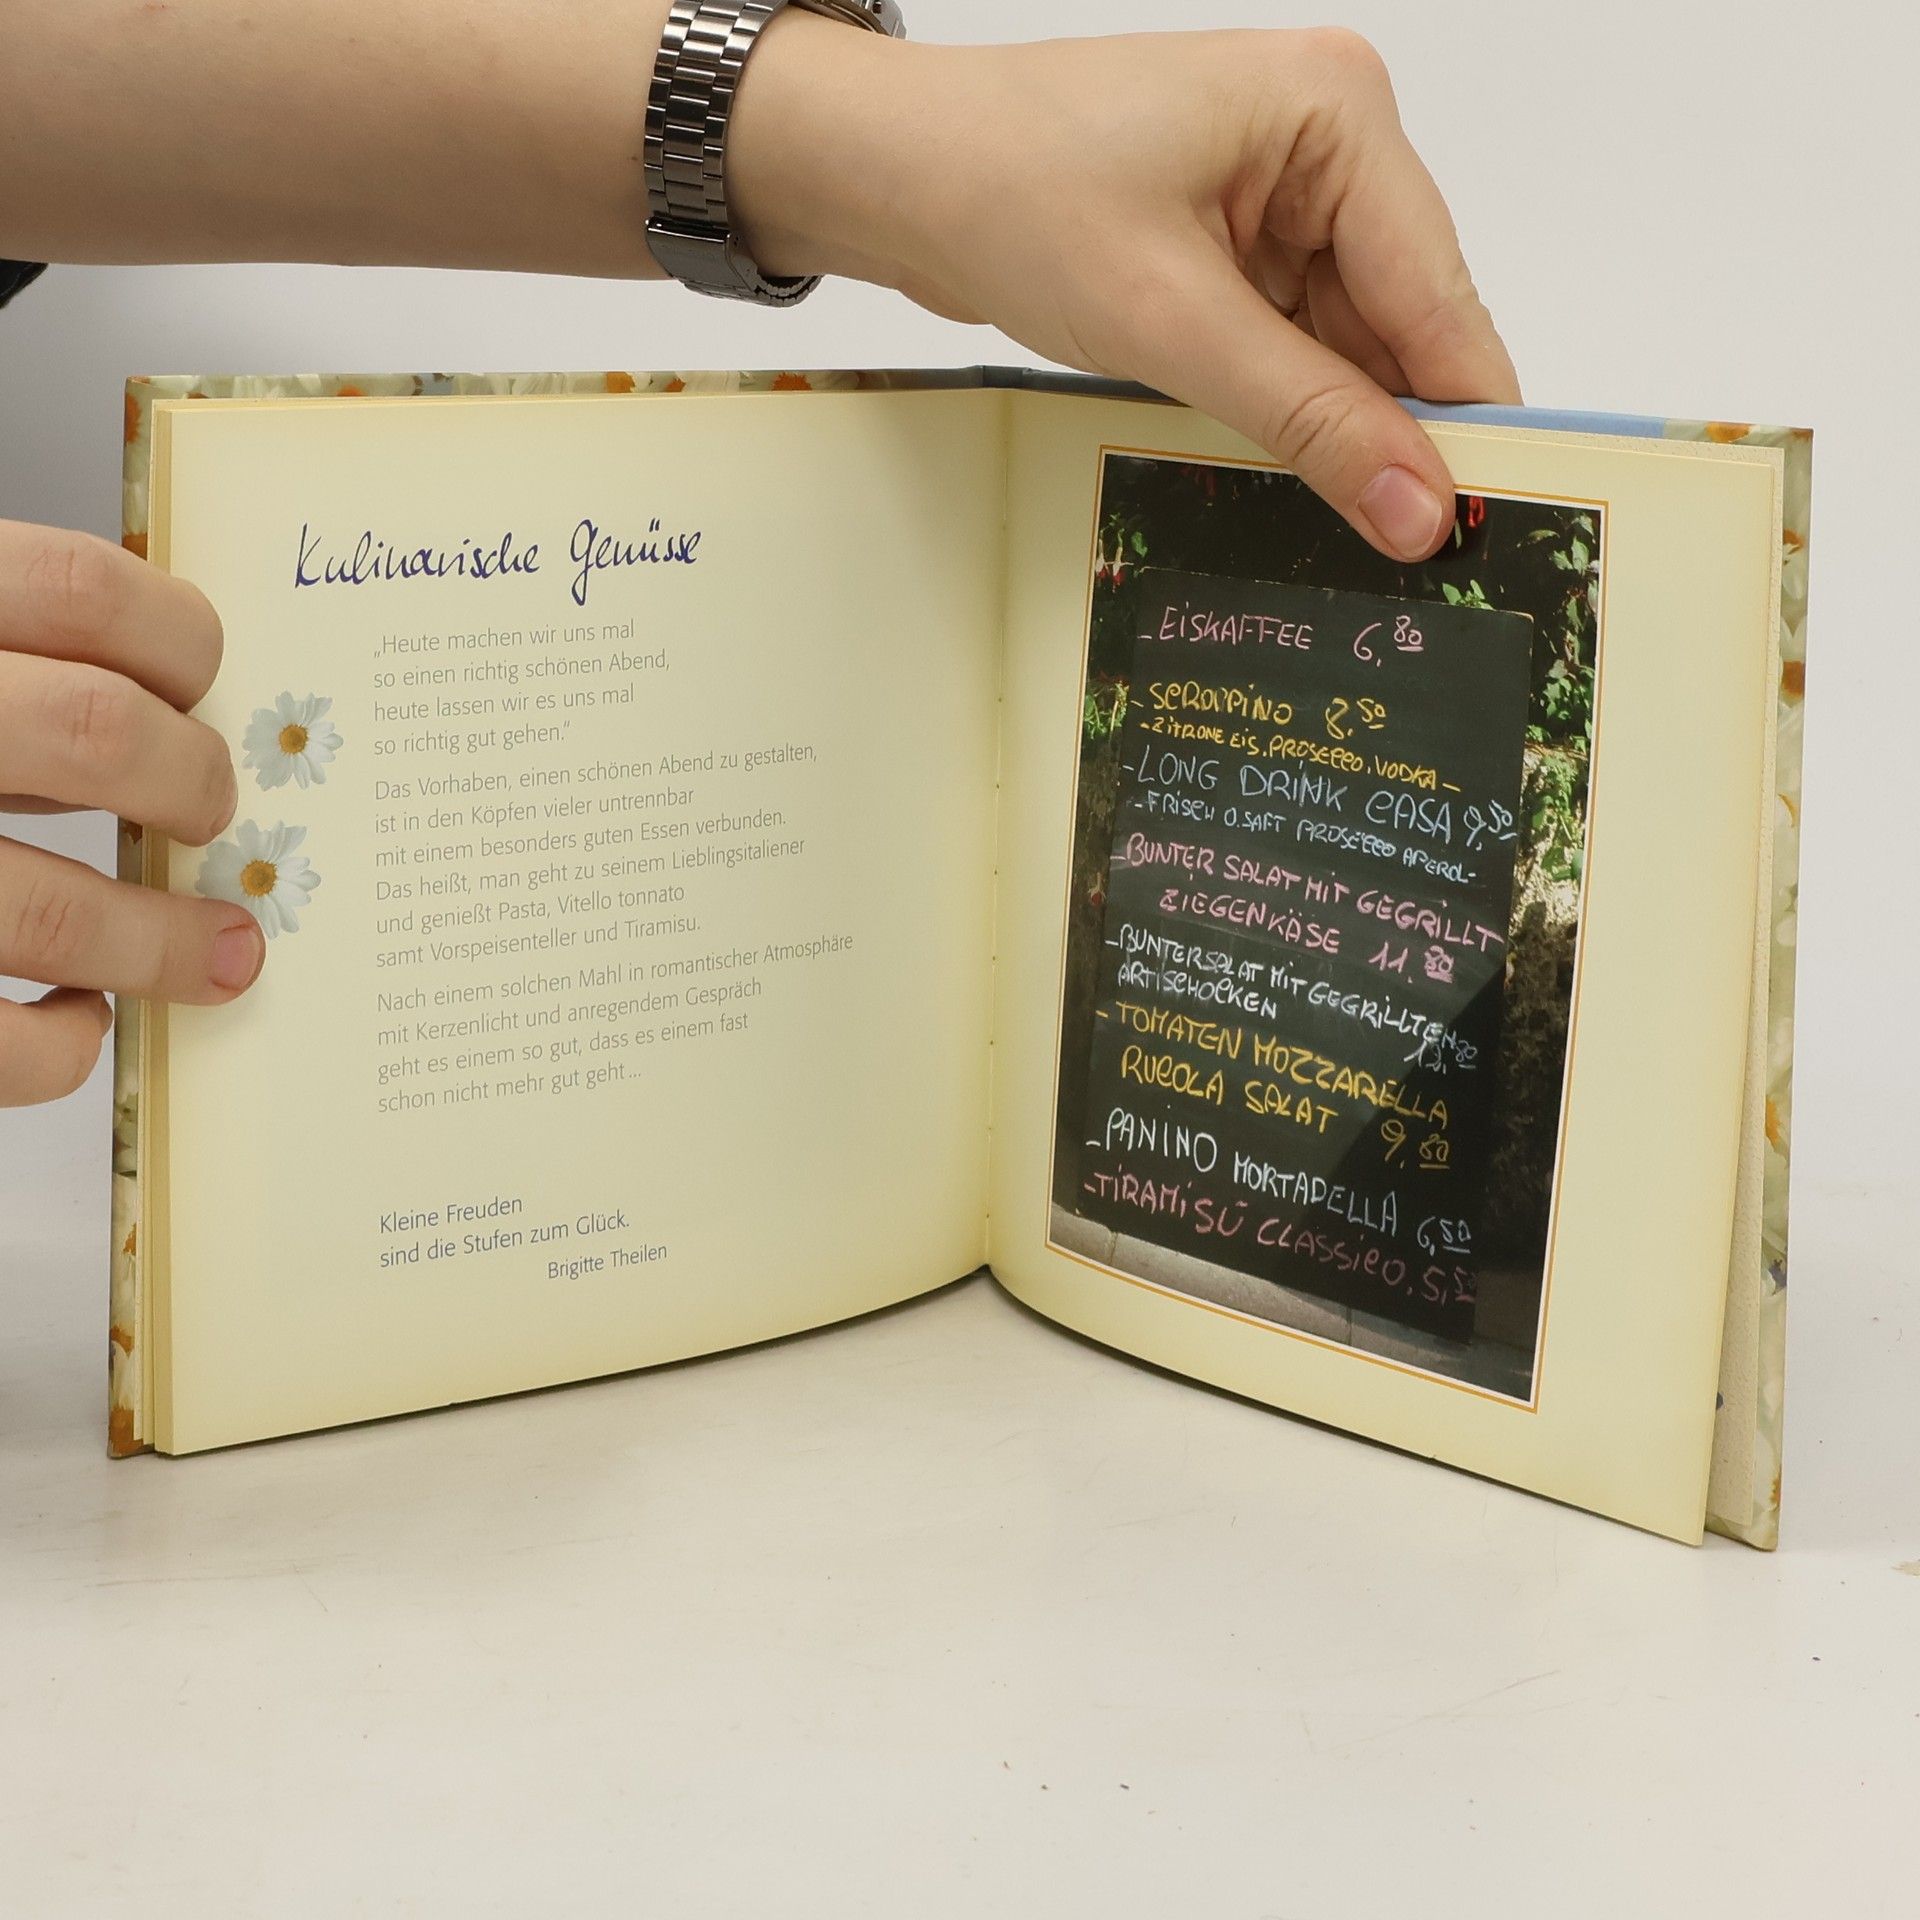 Kulinarische Genüsse
„Heute machen wir uns mal
so einen richtig schönen Abend,
heute lassen wir es uns mal
so richtig gut gehen.“
Das Vorhaben, einen schönen Abend zu gestalten,
ist in den Köpfen vieler untrennbar
mit einem besonders guten Essen verbunden.
Das heißt, man geht zu seinem Lieblingsitaliener
und genießt Pasta, Vitello tonnato
samt Vorspeisenteller und Tiramisu.
Nach einem solchen Mahl in romantischer Atmosphäre
mit Kerzenlicht und anregendem Gespräch
geht es einem so gut, dass es einem fast
schon nicht mehr gut geht ...
Kleine Freuden
sind die Stufen zum Glück.
Brigitte Theilen
- EiSKAFFEE 6,80
- SCROPPINO 8,50
- ZITRONE EIS, PROSECCO, VODKA -
- LONG DRINK CASA 9,50
- FRISCH O.SAFT PROSECCO APEROL -
- BUNTER SALAT MIT GEGRILLT
ZIEGENKÄSE 11,80
- BUNTERSALAT MIT GEGRILLTEN
ARTISCHOCKEN 12,80
- TOMATEN MOZZARELLA
RUCOLA SALAT 9,80
- PANINO MORTADELLA 6,50
- TIRAMISÙ CLASSICO, 5,50